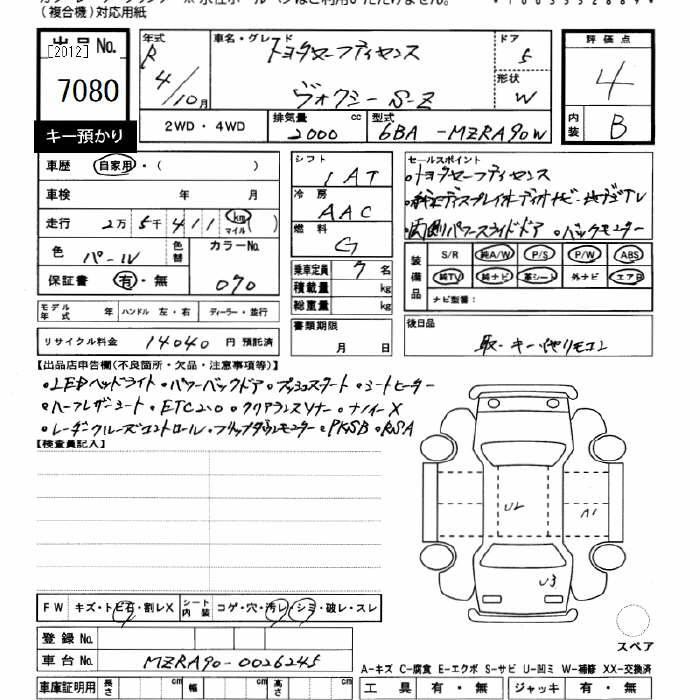 (複合機)対応用紙
出品No.
[2012]
7080
キー預かり
年式 R 4/10月
車名・グレード トヨタセーフティセンス
ヴォクシー S-Z
ドア 5
形状 W
2WD・4WD
排気量 2000 cc
型式 6BA -MZRA90W
評価点
4
内装 B
車歴 自家用・( )
車検 年 月
走行 2万 5千 411 ( km マイル )
色 パール 色替
カラーNo. 070
保証書 有・無
シフト IAT
冷房 AAC
燃料 G
乗車定員 7 名
積載量 kg
総重量 kg
セールスポイント
・トヨタセーフティセンス
・純正ディスプレイオーディオナビ・地デジTV
・両側パワースライドドア ・バックモニター
装備品 S/R 純A/W P/S P/W ABS
純TV 純ナビ 革シート 外ナビ エアB
ナビ型番:
モデル年式 年 ハンドル 左・右 ディーラー・並行
リサイクル料金 14040 円 預託済
書類期限
月 日
後日品
取・キー・他リモコン
【出品店申告欄(不良箇所・欠品・注意事項等)】
・LEDヘッドライト・パワーバックドア・プッシュスタート・シートヒーター
・ハーフレザーシート・ETC2.0・クリアランスソナー・ナノイーX
・レーダークルーズコントロール・フリップダウンモニター・PKSB・RSA
【検査員記入】
U2
A1
U3
FW キズ・トビ石・割レX
シート内装 コゲ・穴・汚レ・シミ・破レ・スレ
スペア
登録No.
車台No. MZRA90-0026245
A-キズ C-腐食 E-エクボ S-サビ U-凹ミ W-補修 XX-交換済
車庫証明用 長さ cm 幅 cm 高さ cm
工具 有・無 ジャッキ 有・無